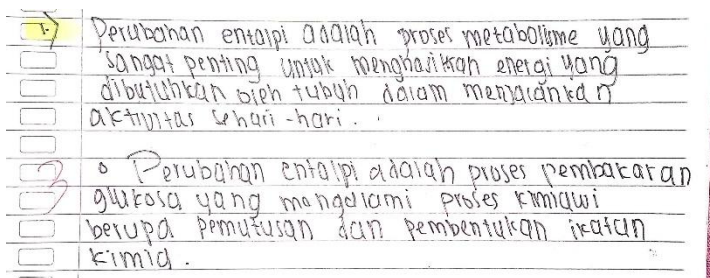 1.) Perubahan entalpi adalah proses metabolisme yang
sangat penting untuk menghasilkan energi yang
dibutuhkan oleh tubuh dalam menjalankan
aktivitas sehari-hari.
• Perubahan entalpi adalah proses pembakaran
3 glukosa yang mengalami proses kimiawi
berupa pemutusan dan pembentukan ikatan
kimia.